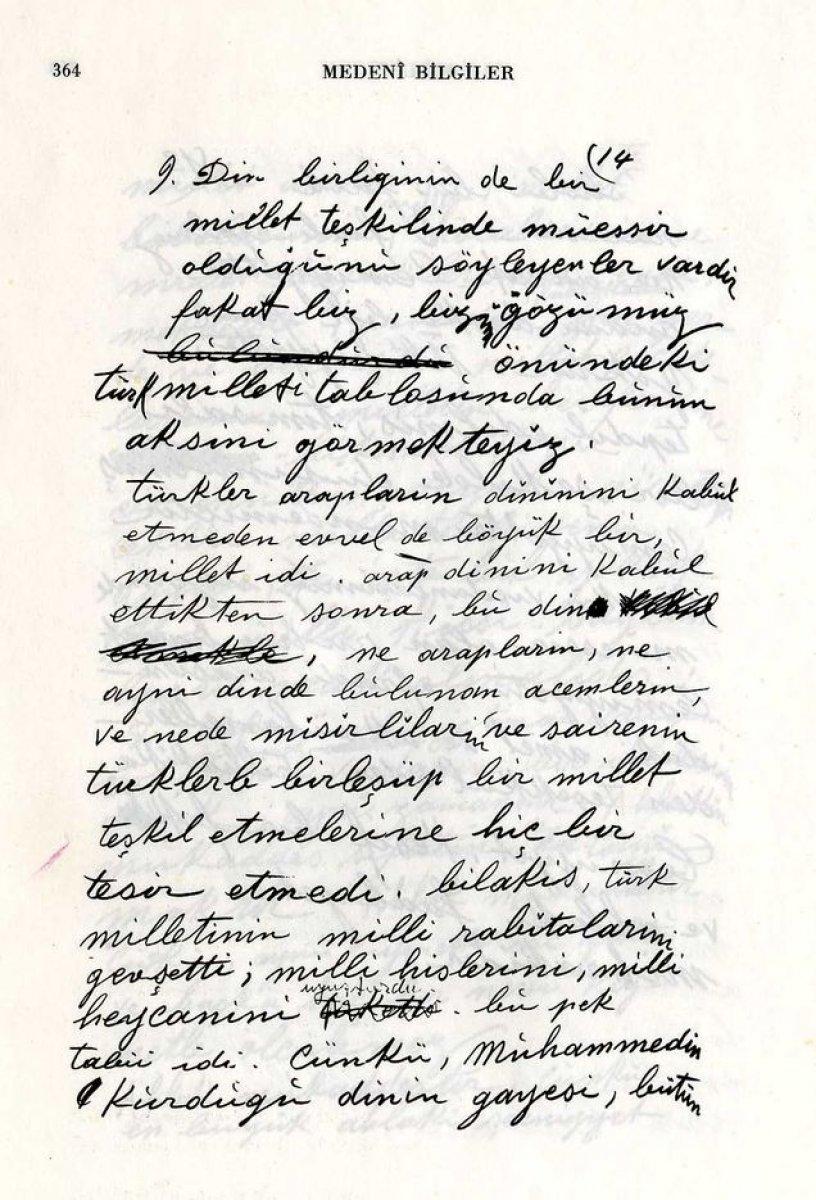 364 MEDENÎ BİLGİLER
(14
9. Din birliginin de bir
millet teşkilinde müessir
olduğunu söyleyenler vardır
fakat biz, bizim gözümüz
önündeki
türk milleti tablosunda bunun
aksini görmekteyiz.
türkler arapların dinini Kabul
etmeden evvel de böyük bir,
millet idi. arap dinini Kabul
ettikten sonra, bu din
, ne arapların, ne
ayni dinde bulunan acemlerin,
ve nede mısırlıların ve sairenin
türklerle birleşüp bir millet
teşkil etmelerine hiç bir
tesir etmedi. bilakis, türk
milletinin milli rabıtalarını
gevşetti; milli hislerini, milli
uyuşturdu
heycanini . bu pek
tabii idi. Cünkü, Muhammedin
Kurduğu dinin gayesi, bütün